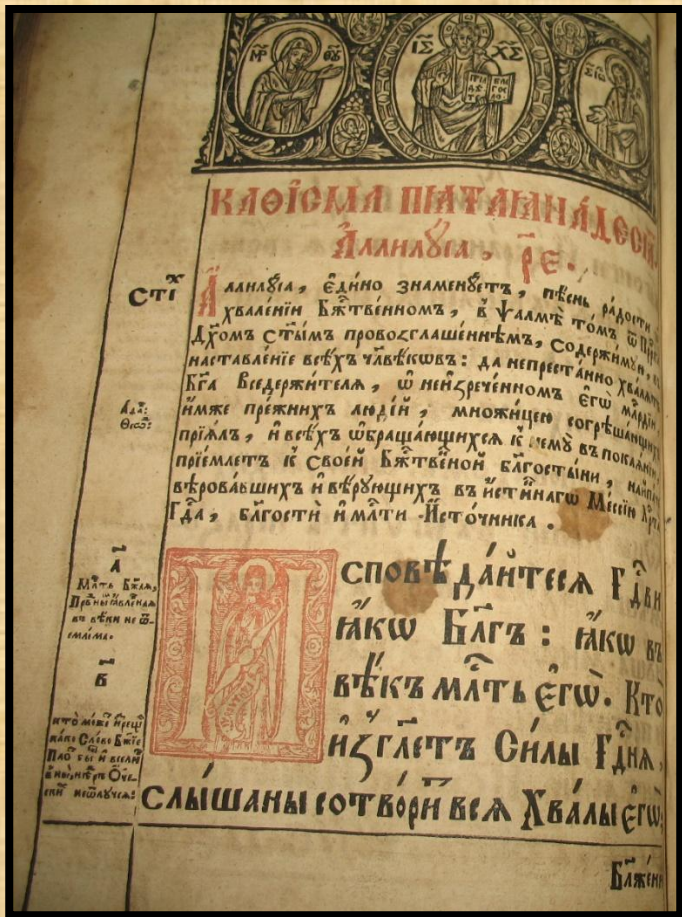 МР ѲУ
ІС ХС
КАѲІСМА ПІАТАІАНАДЕСІАТ
Аллилꙋіа, РЕ.
Стїх
Аллилꙋіа, Єдино знаменꙋетъ, пѣснь радости
хваленїи Бж҃твенномъ, в Ѱалмѣ томъ ѿ
Дх҃омъ ст҃ымъ провозглашеннѣмъ, содержимꙋю,
наставленїе всѣхъ чл҃вѣкѡвъ: да непрестанно хвалятъ
Бг҃а Вседержителя, ѡ неизреченномъ Єгѡ мл҃рдїи,
имже прежнихъ людїй, множицею согрѣшающихъ
прїялъ, и всѣхъ ѡбращающихся к немꙋ въ покаянїи
прїемлетъ к своей Бж҃твеной бл҃гостыни, наипа
вѣровавшихъ и вѣрꙋющихъ въ истиннагѡ Мессїю
Гд҃а, бл҃гости и мл҃ти Источника.
А҃
Мл҃ть Бж҃ая,
въ вѣки не ѿ
емлима.
В҃
кто може
како Слово Бж҃їе
Исповѣдайтеся Гд҃ви
ꙗкѡ Бл҃гъ: ꙗкѡ въ
вѣкъ мл҃ть єгѡ. Кто
изгл҃етъ Силы Гд҃ня,
слышаны сотвори вся Хвалы єгѡ;
Бл҃жени